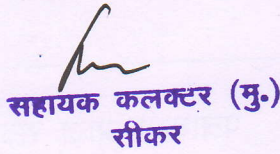 सहायक कलक्टर (मु.)
सीकर